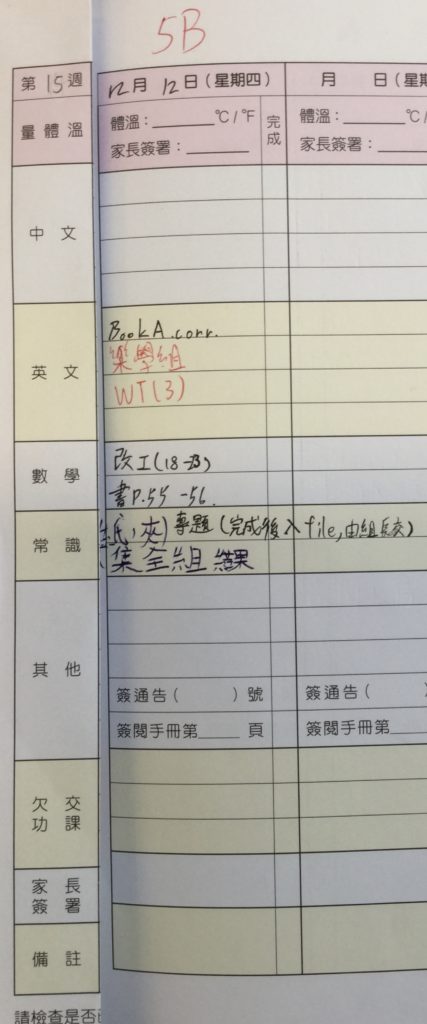 5B
第15週
12月 12日(星期四)
月 日(星期
量體溫
體溫：______°C/°F
家長簽署：______
完成
體溫：______°C/
家長簽署：
中文
英文
BookA.corr.
樂學組
WT(3)
數學
改工(18-
書P.55-56.
常識
紙,夾) 專題(完成後入file,由組長交)
集全組結果
其他
簽通告( )號
簽通告(
簽閱手冊第____頁
簽閱手冊第
欠交功課
家長簽署
備註
請檢查是否已